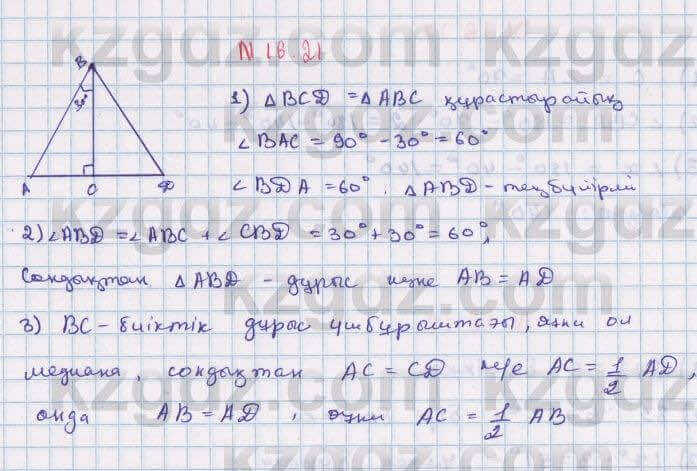 N 18.21
B
30°
A C D
1) △BCD = △ABC құрастырайық
∠BAC = 90° - 30° = 60°
∠BDA = 60°. △ABD - теңбүйірлі
2) ∠ABD = ∠ABC + ∠CBD = 30° + 30° = 60°,
Сондықтан △ABD - дұрыс және AB = AD
3) BC - биіктік дұрыс үшбұрыштағы, яғни ол
медиана, сондықтан AC = CD н/е AC = 1/2 AD,
онда AB = AD, яғни AC = 1/2 AB
kzgdz.com